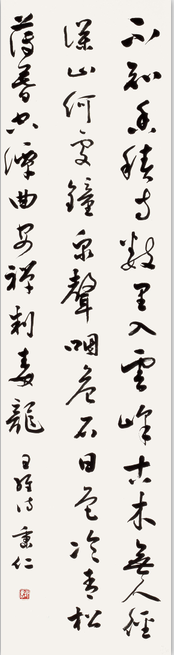 不知香積寺數里入雲峰古木無人徑
深山何處鐘泉聲咽危石日色冷青松
薄暮空潭曲安禪制毒龍 王維詩 秉仁